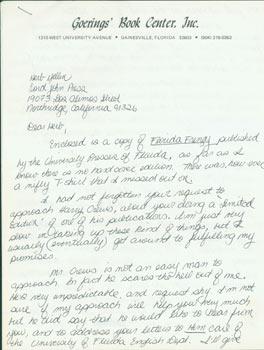 Goerings' Book Center, Inc.
1310 WEST UNIVERSITY AVENUE • GAINESVILLE, FLORIDA 32603 • (904) 378-0363
Herb Yellin
Lord John Press
19073 Los Alimos Street
Northridge, California 91326
Dear Herb,
Enclosed is a copy of Florida Frenzy published
by the University Presses of Florida, as far as I
know there is no hardcover edition. There was, however
a nifty T-shirt that I missed out on.
I had not forgotten your request to
approach Harry Crews, about your doing a "limited
edition" of one of his publications. I'm just very
slow in taking up these kind of things, but I
usually (eventually) get around to fulfilling my
promises.
Mr. Crews is not an easy man to
approach. In fact he scares the hell out of me.
He's very unpredictable, and request shy. I'm not
sure if my approach will help you very much
but he did say that he would like to hear from
you, and to address your letters to Him care of
the University of Florida English Dept. I'll give